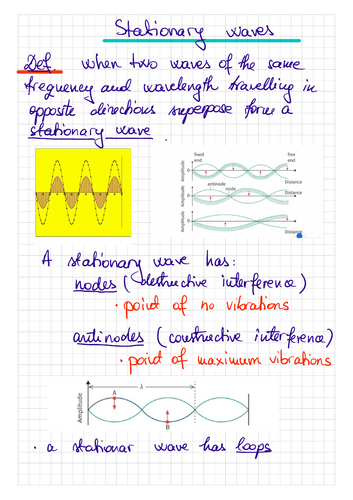 Stationary waves
Def. when two waves of the same
frequency and wavelength travelling in
opposite directions superpose form a
stationary wave.
fixed end
free end
Amplitude
0
Distance
antinode
node
Amplitude
0
Distance
Amplitude
0
Distance
A stationary wave has:
nodes (destructive interference)
• point of no vibrations
antinodes (constructive interference)
• point of maximum vibrations
λ
Amplitude
A
B
• a stationar wave has loops